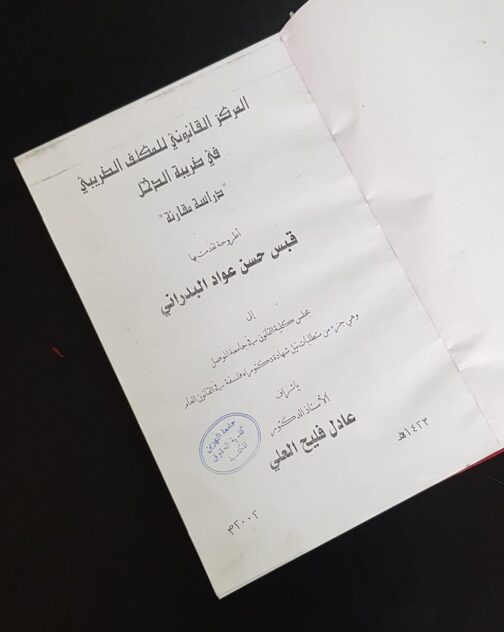 المركز القانوني للمكلف الضريبي
في ضريبة الدخل
"دراسة مقارنة"
أطروحة تقدمت بها
قبس حسن عواد البدراني
إلى
مجلس كلية القانون في جامعة الموصل
وهي جزء من متطلبات نيل شهادة دكتوراه فلسفة في القانون العام
بإشراف
الأستاذ الدكتور
عادل فليح العلي
جامعة النهرين
كلية الحقوق
المكتبة
١٤٢٣هـ
٢٠٠٢م